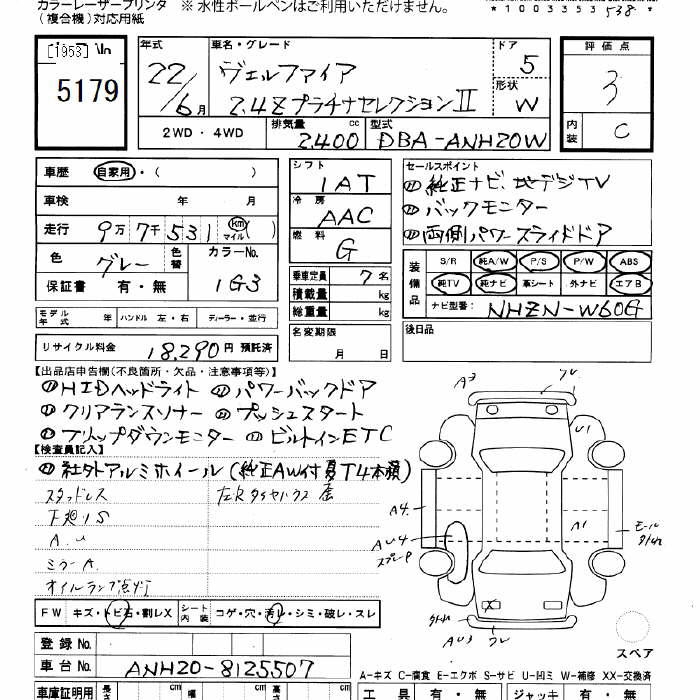 カラーレーザープリンタ ※ 水性ボールペンはご利用いただけません。
(複合機)対応用紙
*1003353538*
[1953]
5179
年式 車名・グレード ドア 評価点
22/6月 ヴェルファイア 5 3
2.4Zプラチナセレクション II 形状 W
2WD・4WD 排気量 2400 cc 型式 DBA-ANH20W 内装 C
車歴 自家用・( )
車検 年 月
走行 9万7千531 km マイル ( )
色 グレー 色替 カラーNo. 1G3
保証書 有・無
モデル年式 年 ハンドル 左・右 ディーラー・並行
リサイクル料金 18,290円 預託済
シフト 1AT
冷房 AAC
燃料 G
乗車定員 7名
積載量 kg
総重量 kg
名変期限 月 日
セールスポイント
純正ナビ、地デジTV
バックモニター
両側パワースライドドア
装備品 S/R 純A/W P/S P/W ABS
純TV 純ナビ 革シート 外ナビ エアB
ナビ型番: NHZN-W60G
後日品
【出品店申告欄(不良箇所・欠品・注意事項等)】
HIDヘッドライト パワーバックドア
クリアランスソナー プッシュスタート
フリップダウンモニター ビルトインETC
【検査員記入】
社外アルミホイール(純正AW付夏T4本積)
スタッドレス
下廻りS
A.U
ミラーA.
オイルランプ点灯
FW キズ・トビ石・割レX シート内装 コゲ・穴・汚レ・シミ・破レ・スレ
登録No.
車台No. ANH20-8125507
車庫証明用 長さ cm 幅 cm 高 cm
A3
U1
A4.
AU4
スプレーP
A1
モール
X
AU3
スペア
A-キズ C-腐食 E-エクボ S-サビ U-凹ミ W-補修 XX-交換済
工具 有・無 ジャッキ 有・無